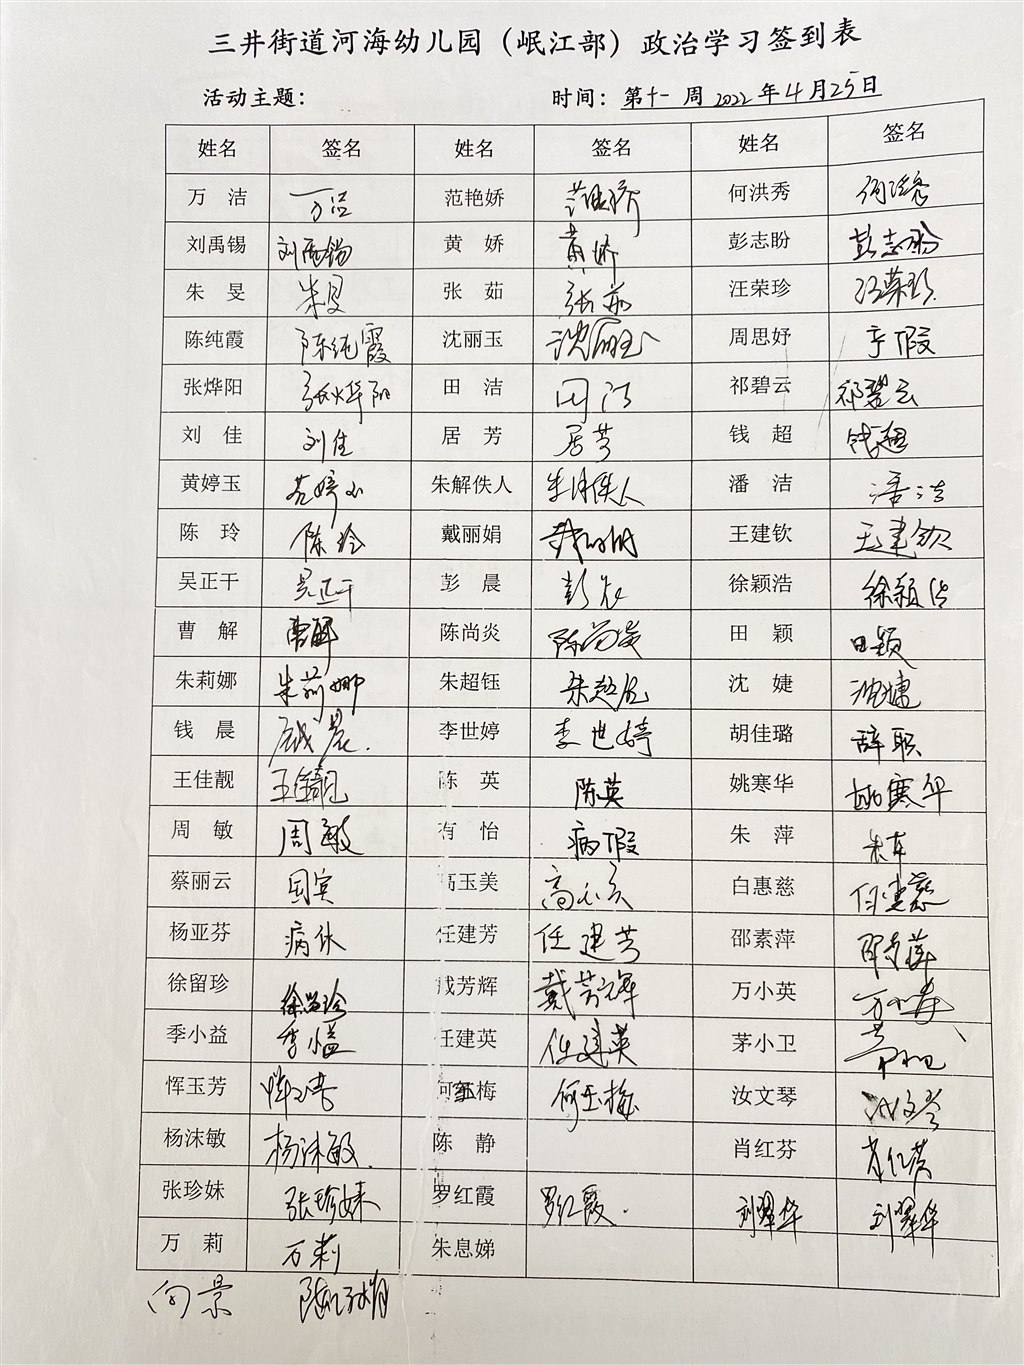 三井街道河海幼儿园（岷江部）政治学习签到表
活动主题： 时间：第十一周 2022年4月25日
姓名 签名 姓名 签名 姓名 签名
万洁 万洁 范艳娇 范艳娇 何洪秀 何洪秀
刘禹锡 刘禹锡 黄娇 黄娇 彭志盼 彭志盼
朱旻 朱旻 张茹 张茹 汪荣珍 汪荣珍
陈纯霞 陈纯霞 沈丽玉 沈丽玉 周思妤 产假
张烨阳 张烨阳 田洁 田洁 祁碧云 祁碧云
刘佳 刘佳 居芳 居芳 钱超 钱超
黄婷玉 黄婷玉 朱解佚人 朱解佚人 潘洁 潘洁
陈玲 陈玲 戴丽娟 戴丽娟 王建钦 王建钦
吴正干 吴正干 彭晨 彭晨 徐颖浩 徐颖浩
曹解 曹解 陈尚炎 陈尚炎 田颖 田颖
朱莉娜 朱莉娜 朱超钰 朱超钰 沈婕 沈婕
钱晨 钱晨. 李世婷 李世婷 胡佳璐 辞职
王佳靓 王佳靓 陈英 陈英 姚寒华 姚寒华
周敏 周敏 有怡 病假 朱萍 朱萍
蔡丽云 国宾 高玉美 高玉美 白惠慈 白惠慈
杨亚芬 病休 任建芳 任建芳 邵素萍 邵素萍
徐留珍 徐留珍 戴芳辉 戴芳辉 万小英 万小英
季小益 季小益 任建英 任建英 茅小卫 茅小卫
恽玉芳 恽玉芳 何玉梅 何玉梅 汝文琴 汝文琴
杨沫敏 杨沫敏. 陈静 肖红芬 肖红芬
张珍妹 张珍妹 罗红霞 罗红霞. 刘翠华 刘翠华
万莉 万莉 朱息娣
向景